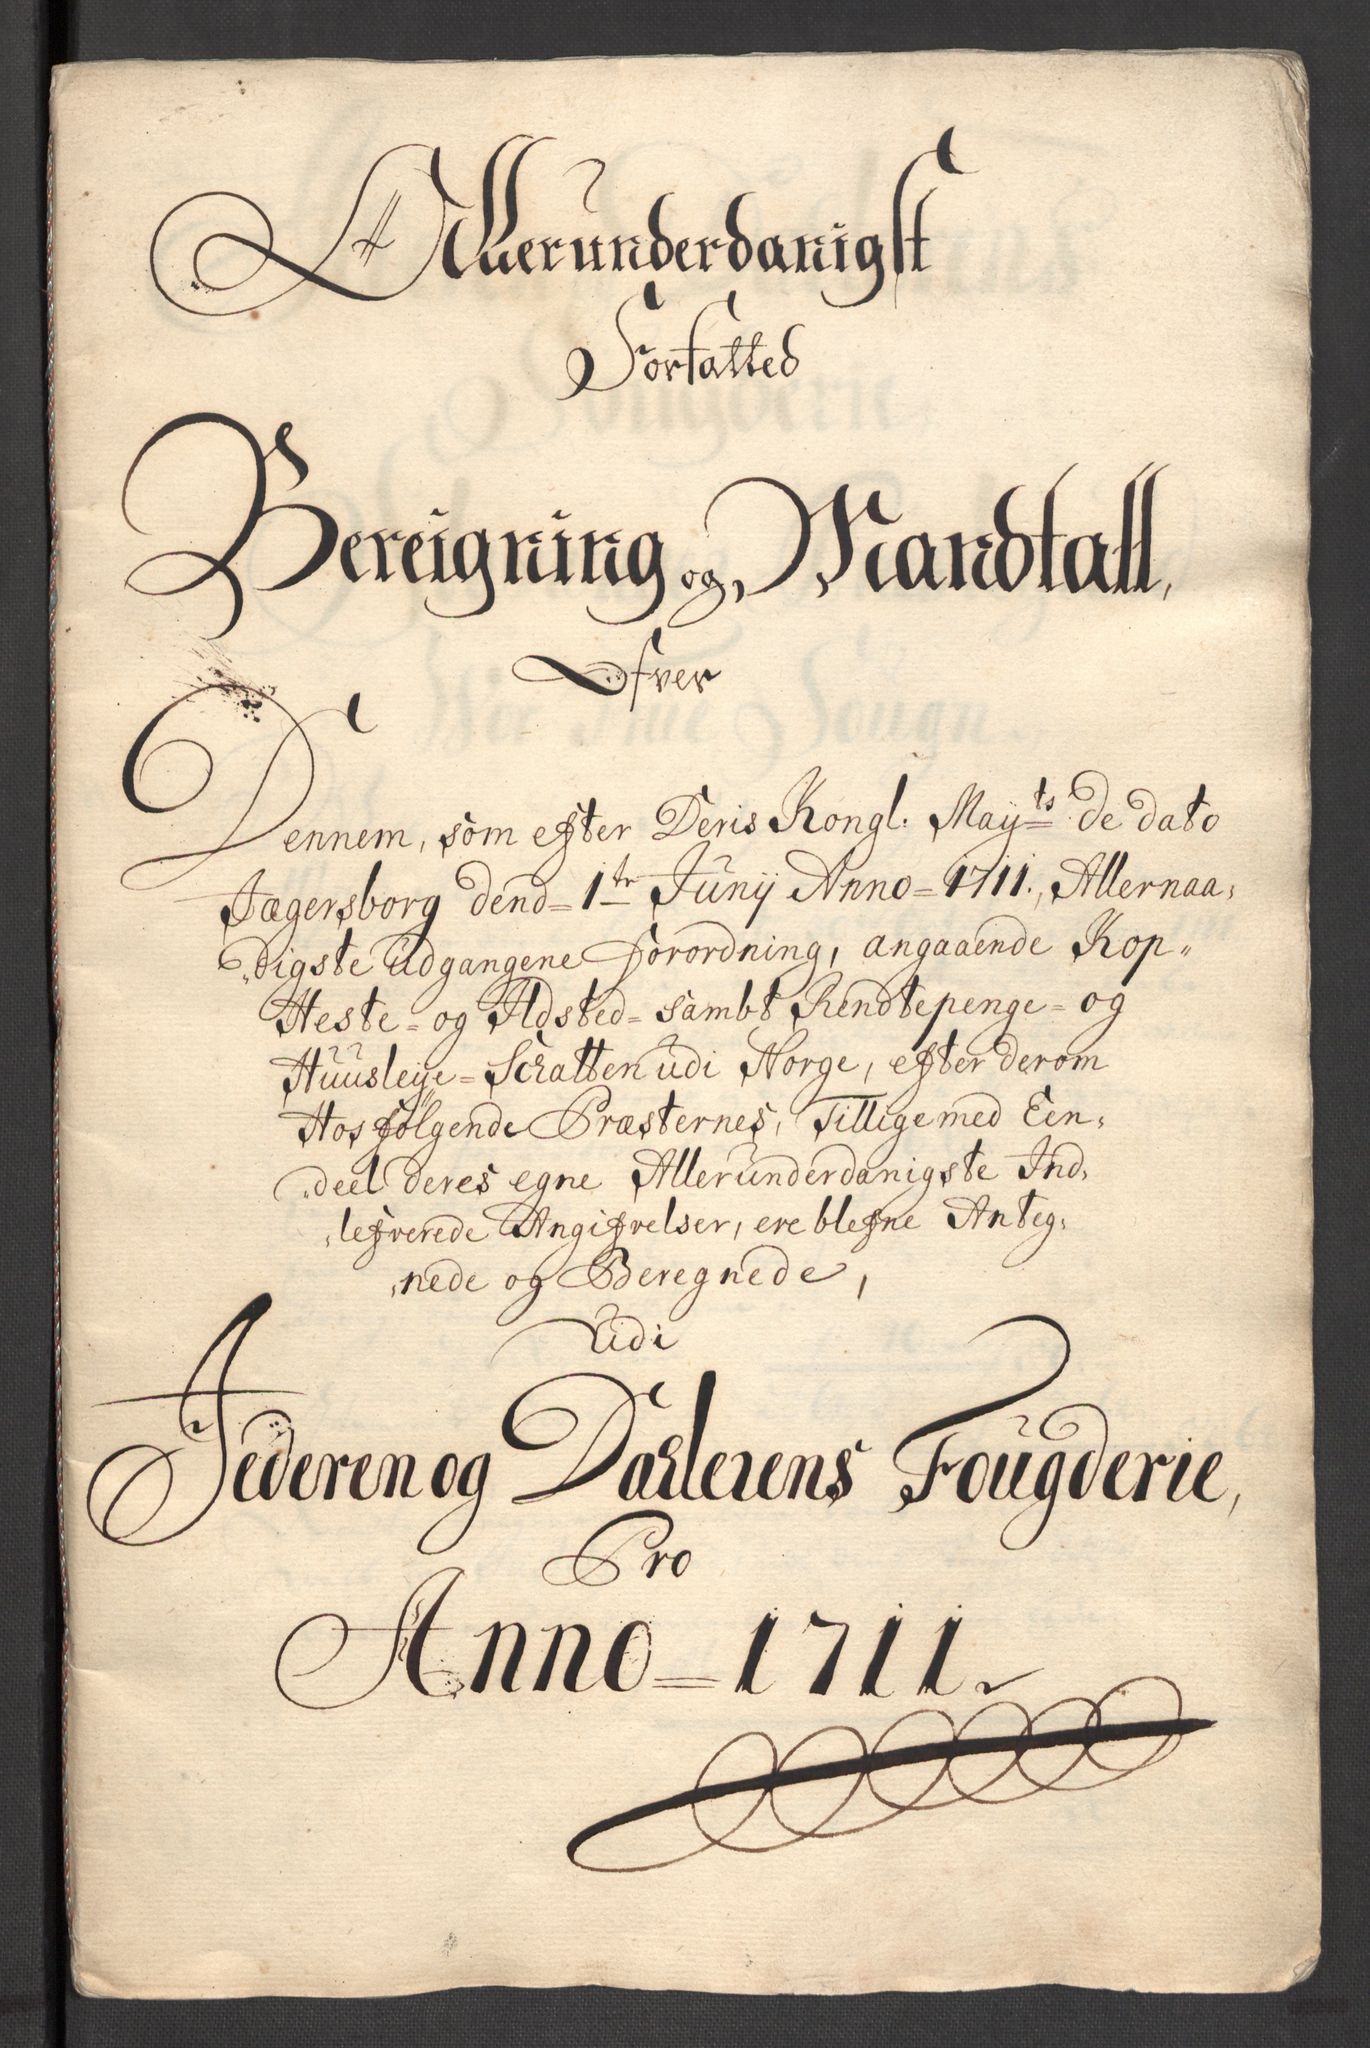 Allerunderdanigst
Forfatted
Bereigning og Mandtall,
Ofver
Dennem, som efter Deris Kongl: Mayts de dato
Jægersborg dend= 1te Junij Anno= 1711., Allernaa=
„digste udgangene Forordning, angaaende Kop„
Heste= og Ildsted= sambt Rendtepenge= og
Huusleye= Schatten udi Norge, efter derom
Hosfølgende Præsternes, Tillige med Een=
„deel deres egne Allerunderdanigste Ind=
„lefverede Angifvelser, ere blefne Anteg=
„nede og Beregnede,
Udi
Jederen og Dahlernes Fougderie,
Pro
Anno= 1711.